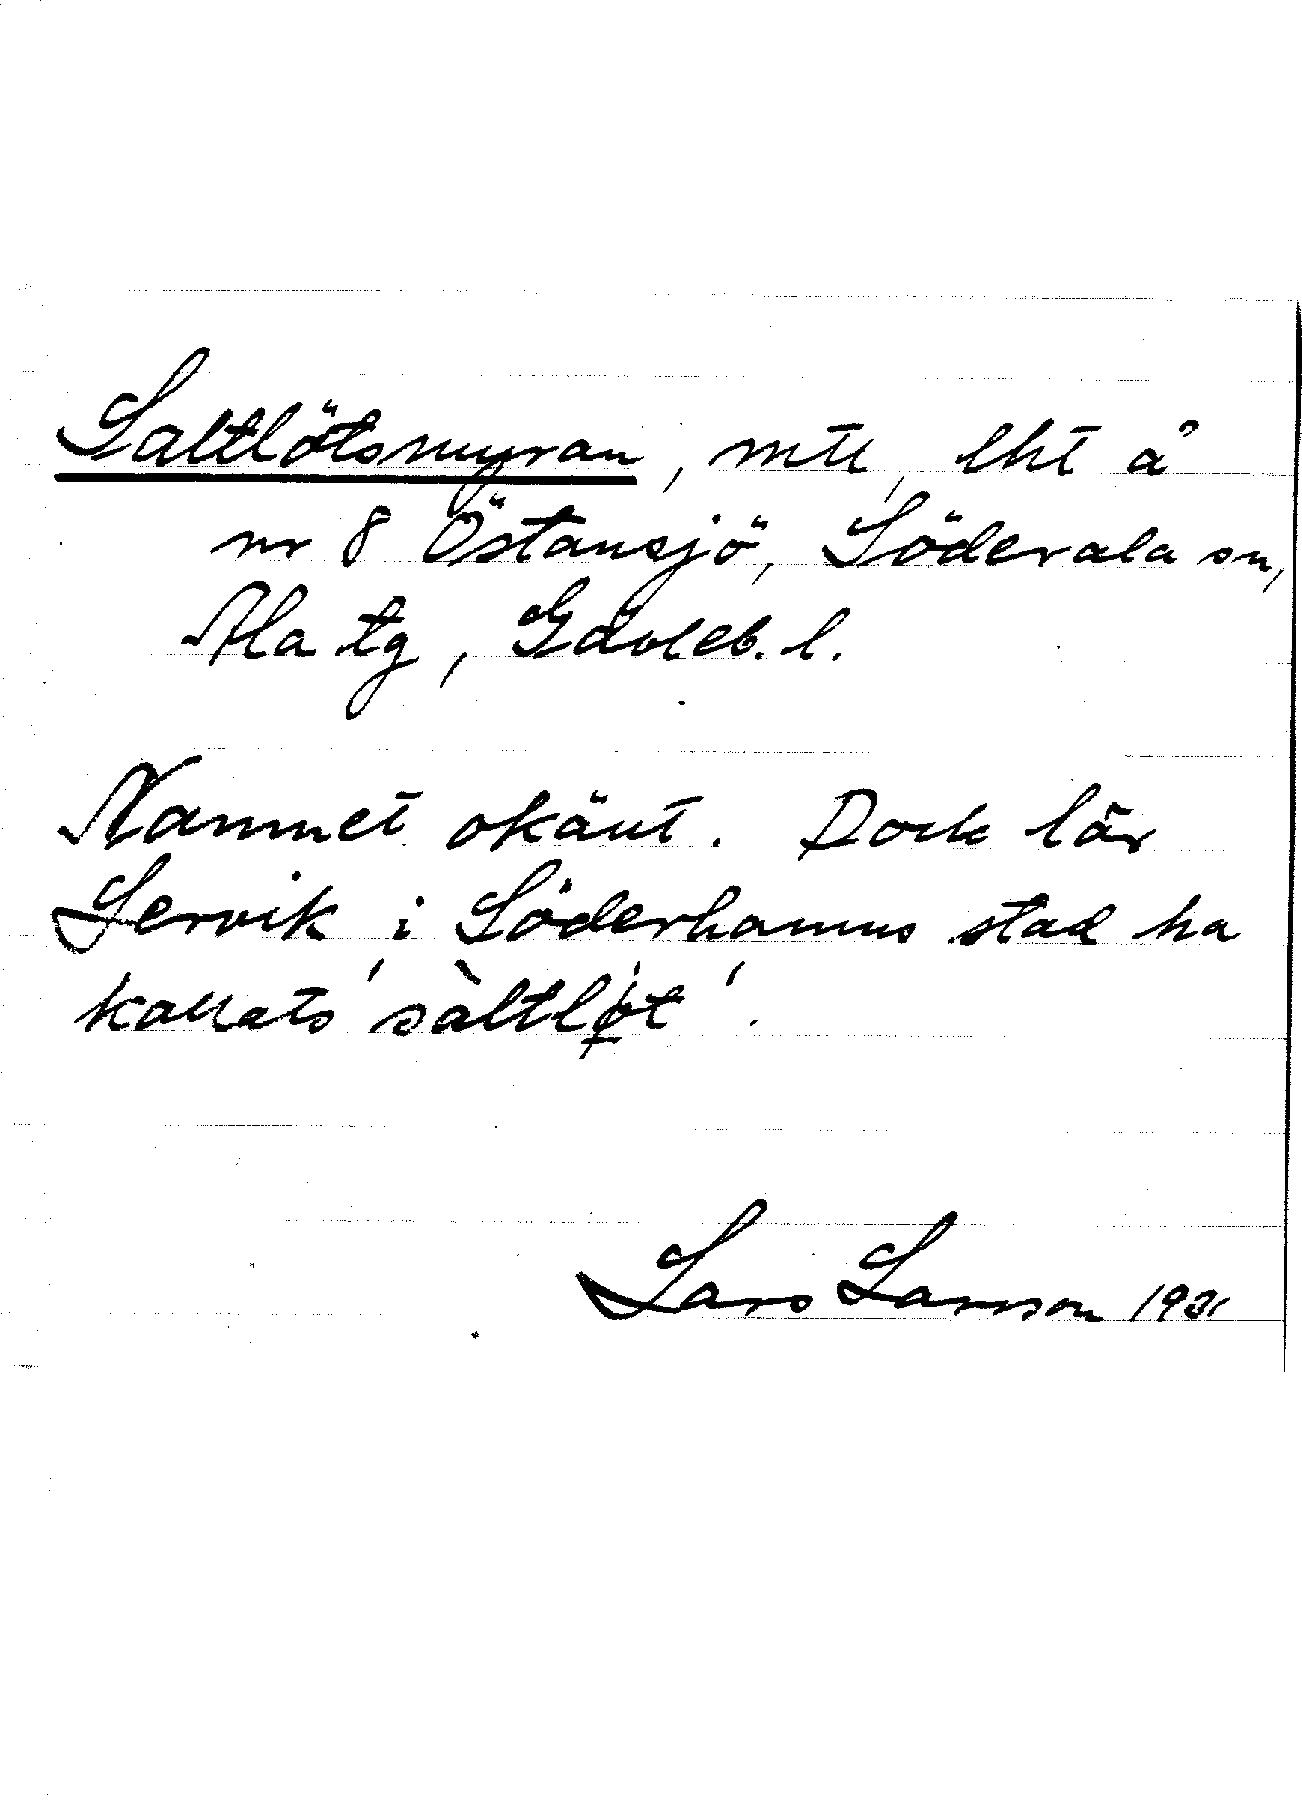 Saltlötsmyran, mtl, lht å
nr 8 Östansjö, Söderala sn,
Ala tg, Gävleb. l.
Namnet okänt. Dock lär
Servik i Söderhamns stad ha
kallats 'sàltløt'.
Lars Larsson 1931